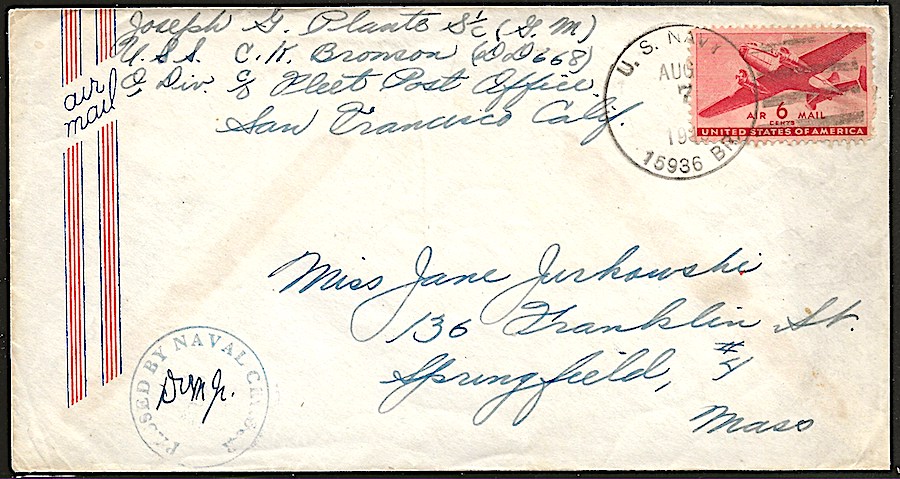 Joseph G. Plante S1/c (G.M)
U.S.S. C.K. Bronson (DD668)
O Div. c/o Fleet Post Office.
San Francisco Calif.
air
mail
U.S. NAVY
AUG
7
15936 BR.
AIR 6 MAIL
CENTS
UNITED STATES OF AMERICA
Miss Jane Jurkowski
136 Franklin St.
Springfield, #4
Mass
PASSED BY NAVAL CENSOR